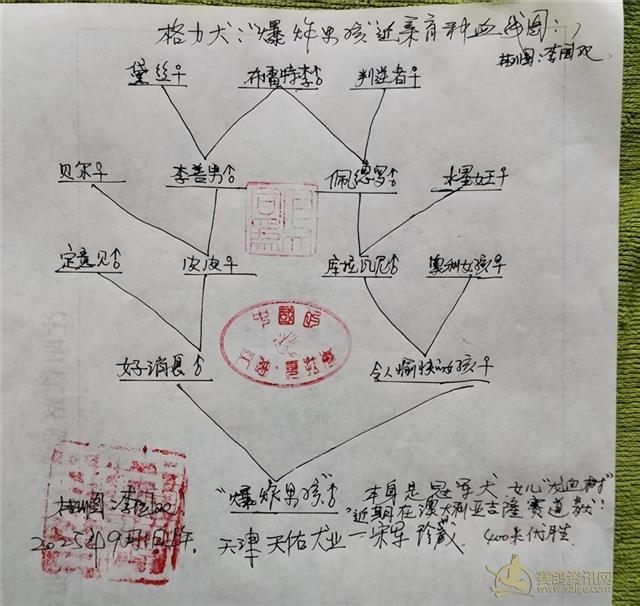 格力犬:"爆炸男孩"近亲育种血线图:
制图:李国双
黛丝♀ 布雷特李♂ 判逆者♀
贝尔♀ 李普男♂ 佩德罗♂ 水星女王♀
定意见♂ 皮皮♀ 库拉瓦尼♂ 澳洲女孩♀
好消息♂ 令人愉快的女孩♀
"爆炸男孩"♂ 本身是冠军犬 女儿
近期在澳大利亚吉隆赛道获:
制图:李国双
2025年9月 天津天佑犬业—宋军珍藏 400米优胜.
赛鸽资讯网
www.saige.com